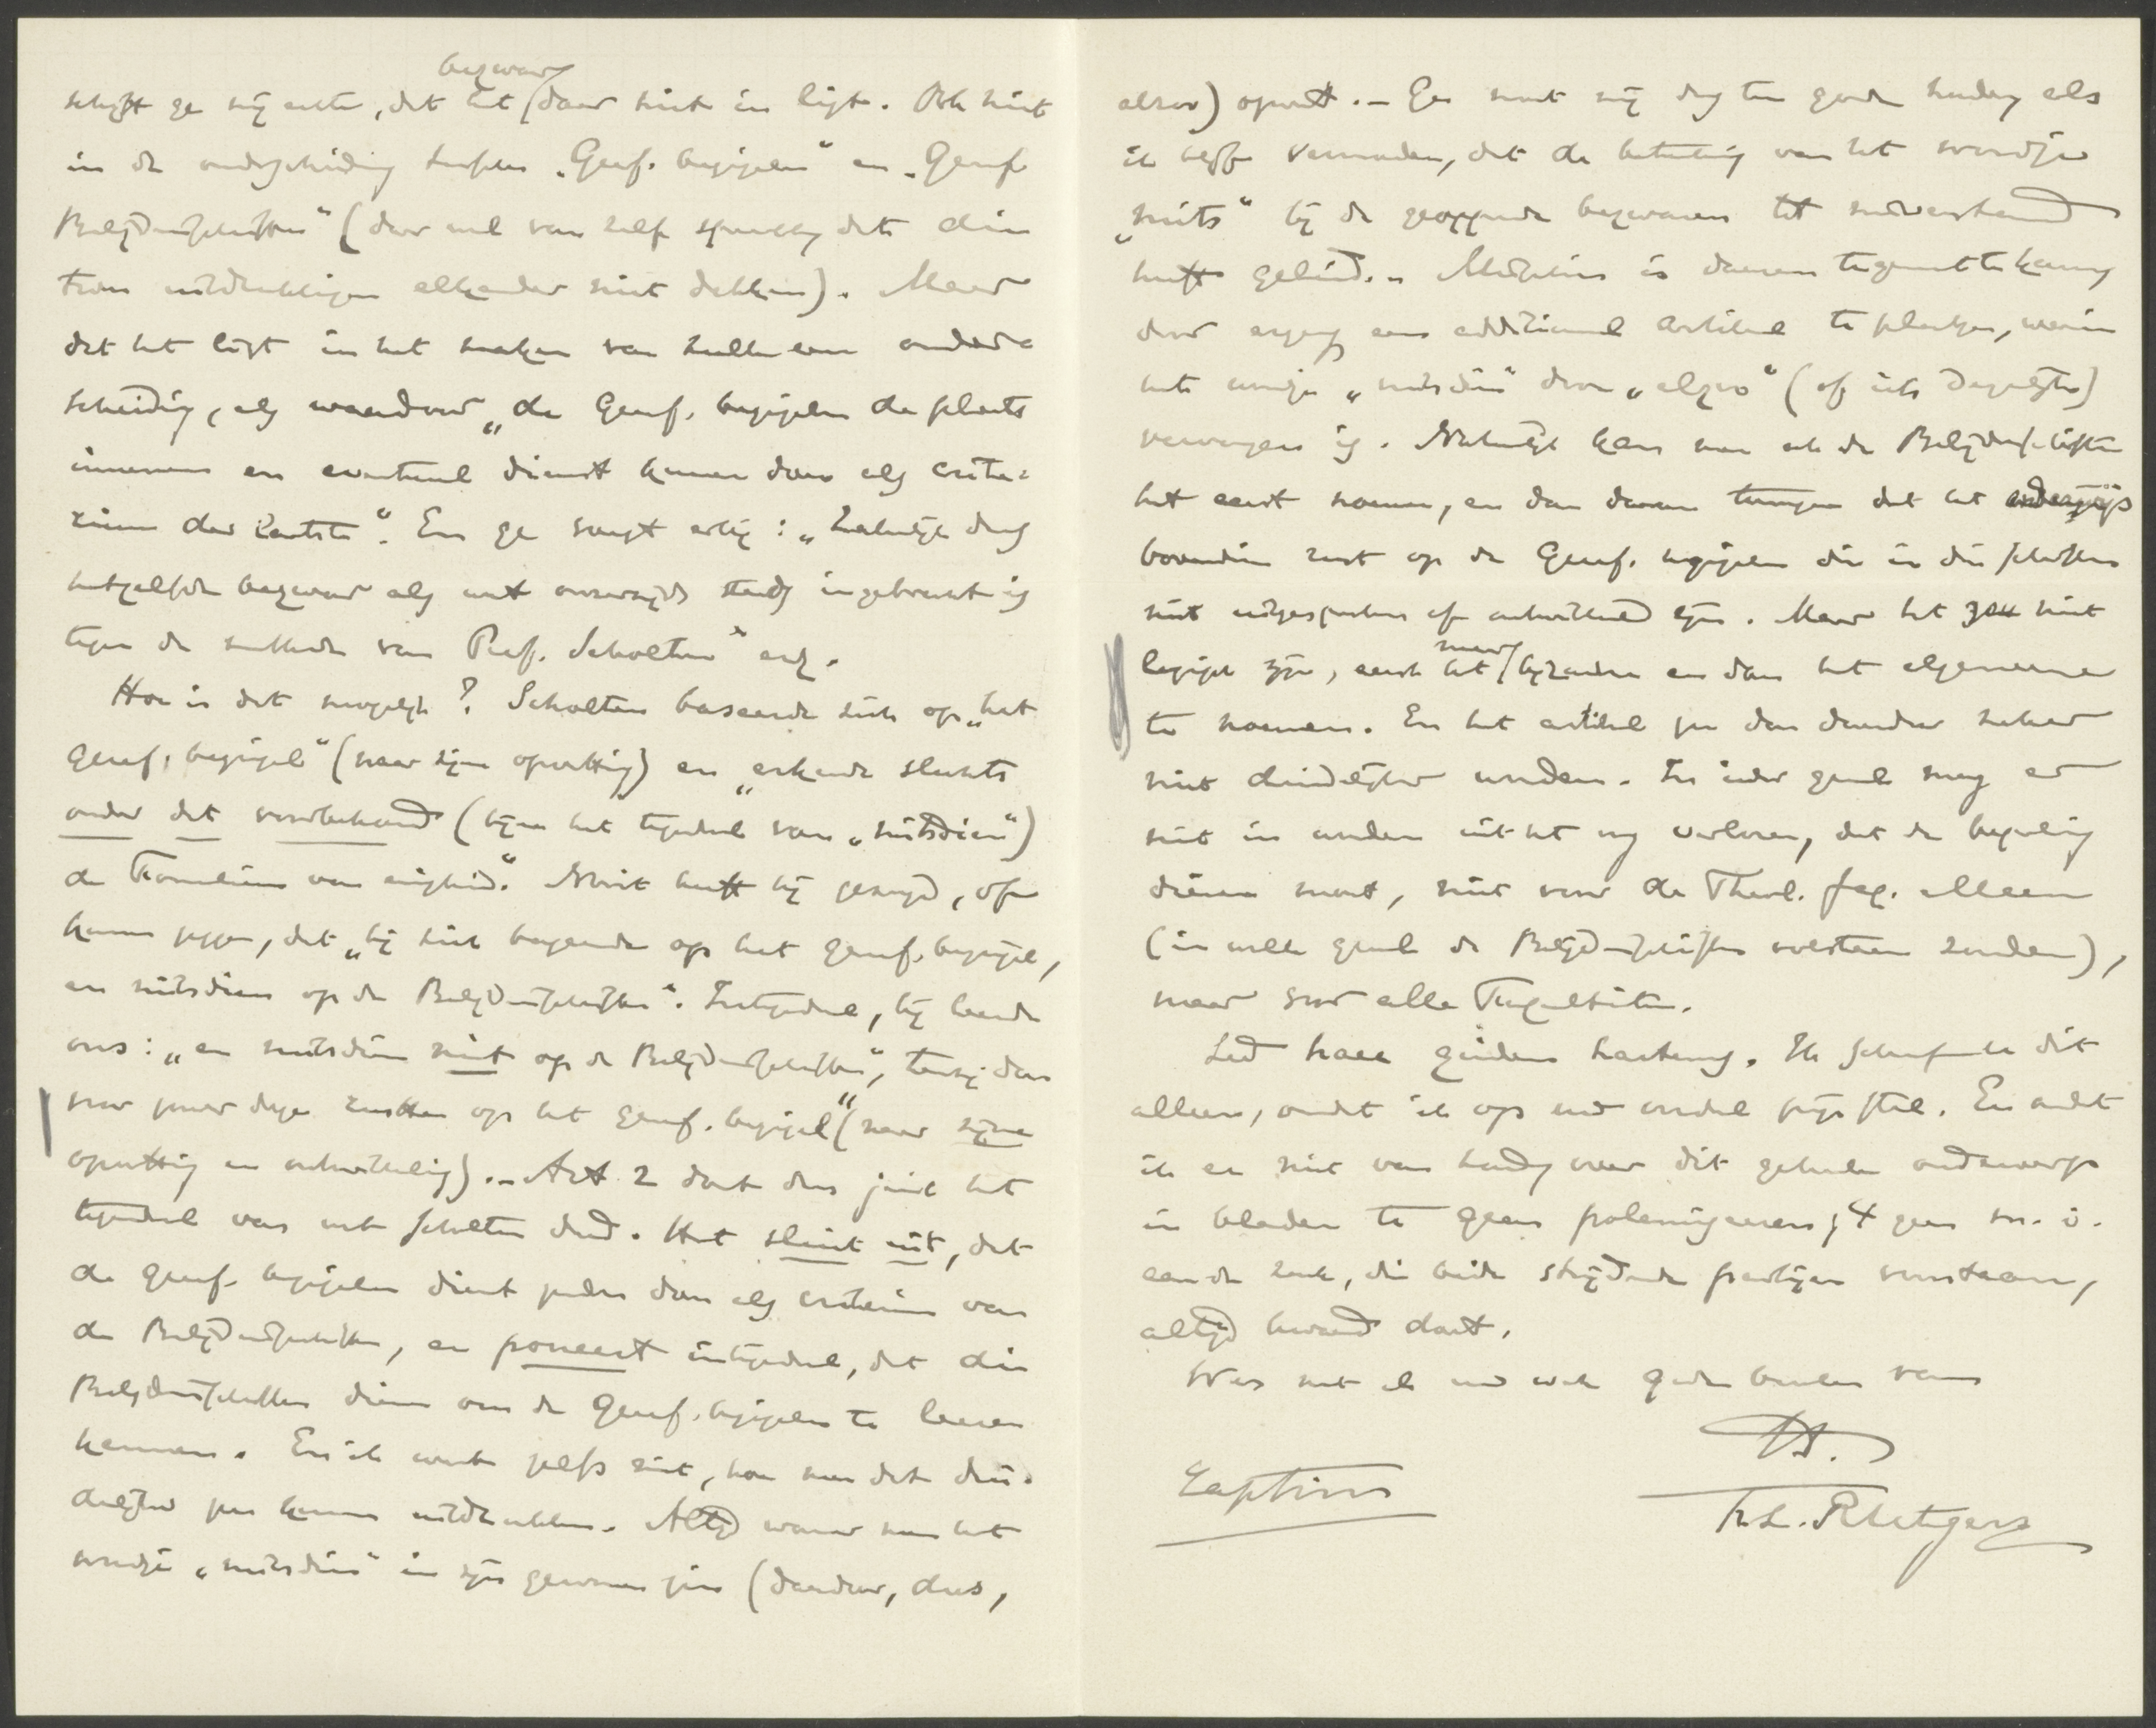 bezwaar
schrijft ge mij echter, dat het daar niet in ligt. Ook niet
in de onderscheiding tusschen „Geref. beginselen" en „Geref.
Belijdenisschriften" (daar wel van zelf spreekt, dat die
twee uitdrukkingen elkander niet dekken). Maar
dat het ligt in het maken van zulk een onder-
scheiding, als waardoor „de Geref. beginselen de plaats
innemen en eventueel dienst kunnen doen als crite-
rium der laatste". En ge voegt erbij: „Zakelijk dus
hetzelfde bezwaar als met onzerzijds steeds ingebracht is
tegen de methode van Prof. Scholten" enz.
Hoe is dat mogelijk? Scholten baseerde zich op „het
Geref. beginsel" (naar zijne opvatting) en „erkende slechts
onder dat voorbehoud (bijna het tegendeel van „mitsdien")
de Formulieren van eenigheid." Nooit heeft hij gezegd, of
kunnen zeggen, dat „hij zich baseerde op het geref. beginsel,
en mitsdien op de Belijdenisschriften". Integendeel, hij leerde
ons: „en mitsdien niet op de Belijdenisschriften", tenzij dan
voor zoover deze rustten op het geref. beginsel" (naar zijne
opvatting en ontwikkeling). – Art 2 doet dus juist het
tegendeel van wat Scholten deed. Het sluit uit, dat
de geref. beginselen dienst zouden doen als criterium van
de Belijdenisschriften, en poneert integendeel, dat die
Belijdenisschriften dienen om de Geref. beginselen te leeren
kennen. En ik weet zelfs niet, hoe men dat dui-
delijker zou kunnen uitdrukken. Altijd wanneer men het
woordje „mitsdien" in zijn gewonen zin (daardoor, dus,
alzoo) opvat. – Ge moet mij dus ten goede houden, als
ik blijf vermoeden, dat de beteekenis van het woordje
„mits" bij de geopperde bezwaren tot misverstand
heeft geleid. – Misschien is daaraan tegemoet te komen
door ergens een additioneel artikel te plaatsen, waarin
het woordje „mitsdien" door „alzoo" (of iets dergelijks)
vervangen is. Natuurlijk kan men ook de Belijdenisschriften
het eerst noemen, en dan daaraan toevoegen dat het onderwijs
bovendien rust op de Geref. beginselen die in die schriften
niet uitgesproken of ontwikkeld zijn. Maar het zou niet
meer
logisch zijn, eerst het bijzondere en dan het algemeene
te noemen. En het artikel zou dan daardoor zeker
niet duidelijker worden. In ieder geval mag er
niet in worden uit het oog verloren, dat de bepaling
dienen moet, niet voor de Theol. fac. alleen
(in welk geval de Belijdenisschriften volstaan zouden),
maar voor alle Faculteiten.
alleen, omdat ik op uw oordeel prijs stel. En omdat
ik er niet van houd, over dit geheele onderwerp
in bladen te gaan polemiseeren; 't geen m. i.
aan de zaak, die beide strijdende partijen voorstaan,
altijd kwaad doet.
Wees met uw ook gegroet van
tt.
F. L. Rutgers